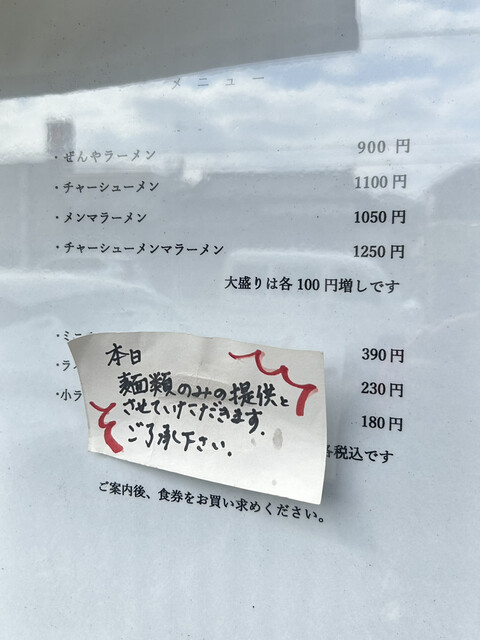 メニュー
・ぜんやラーメン 900 円
・チャーシューメン 1100 円
・メンマラーメン 1050 円
・チャーシューメンマラーメン 1250 円
大盛りは各 100 円増しです
・ミニ 390 円
・ラ 230 円
・小ラ 180 円
税込です
本日
麺類のみの提供と
させていただきます.
ご了承下さい.
ご案内後、食券をお買い求めください。